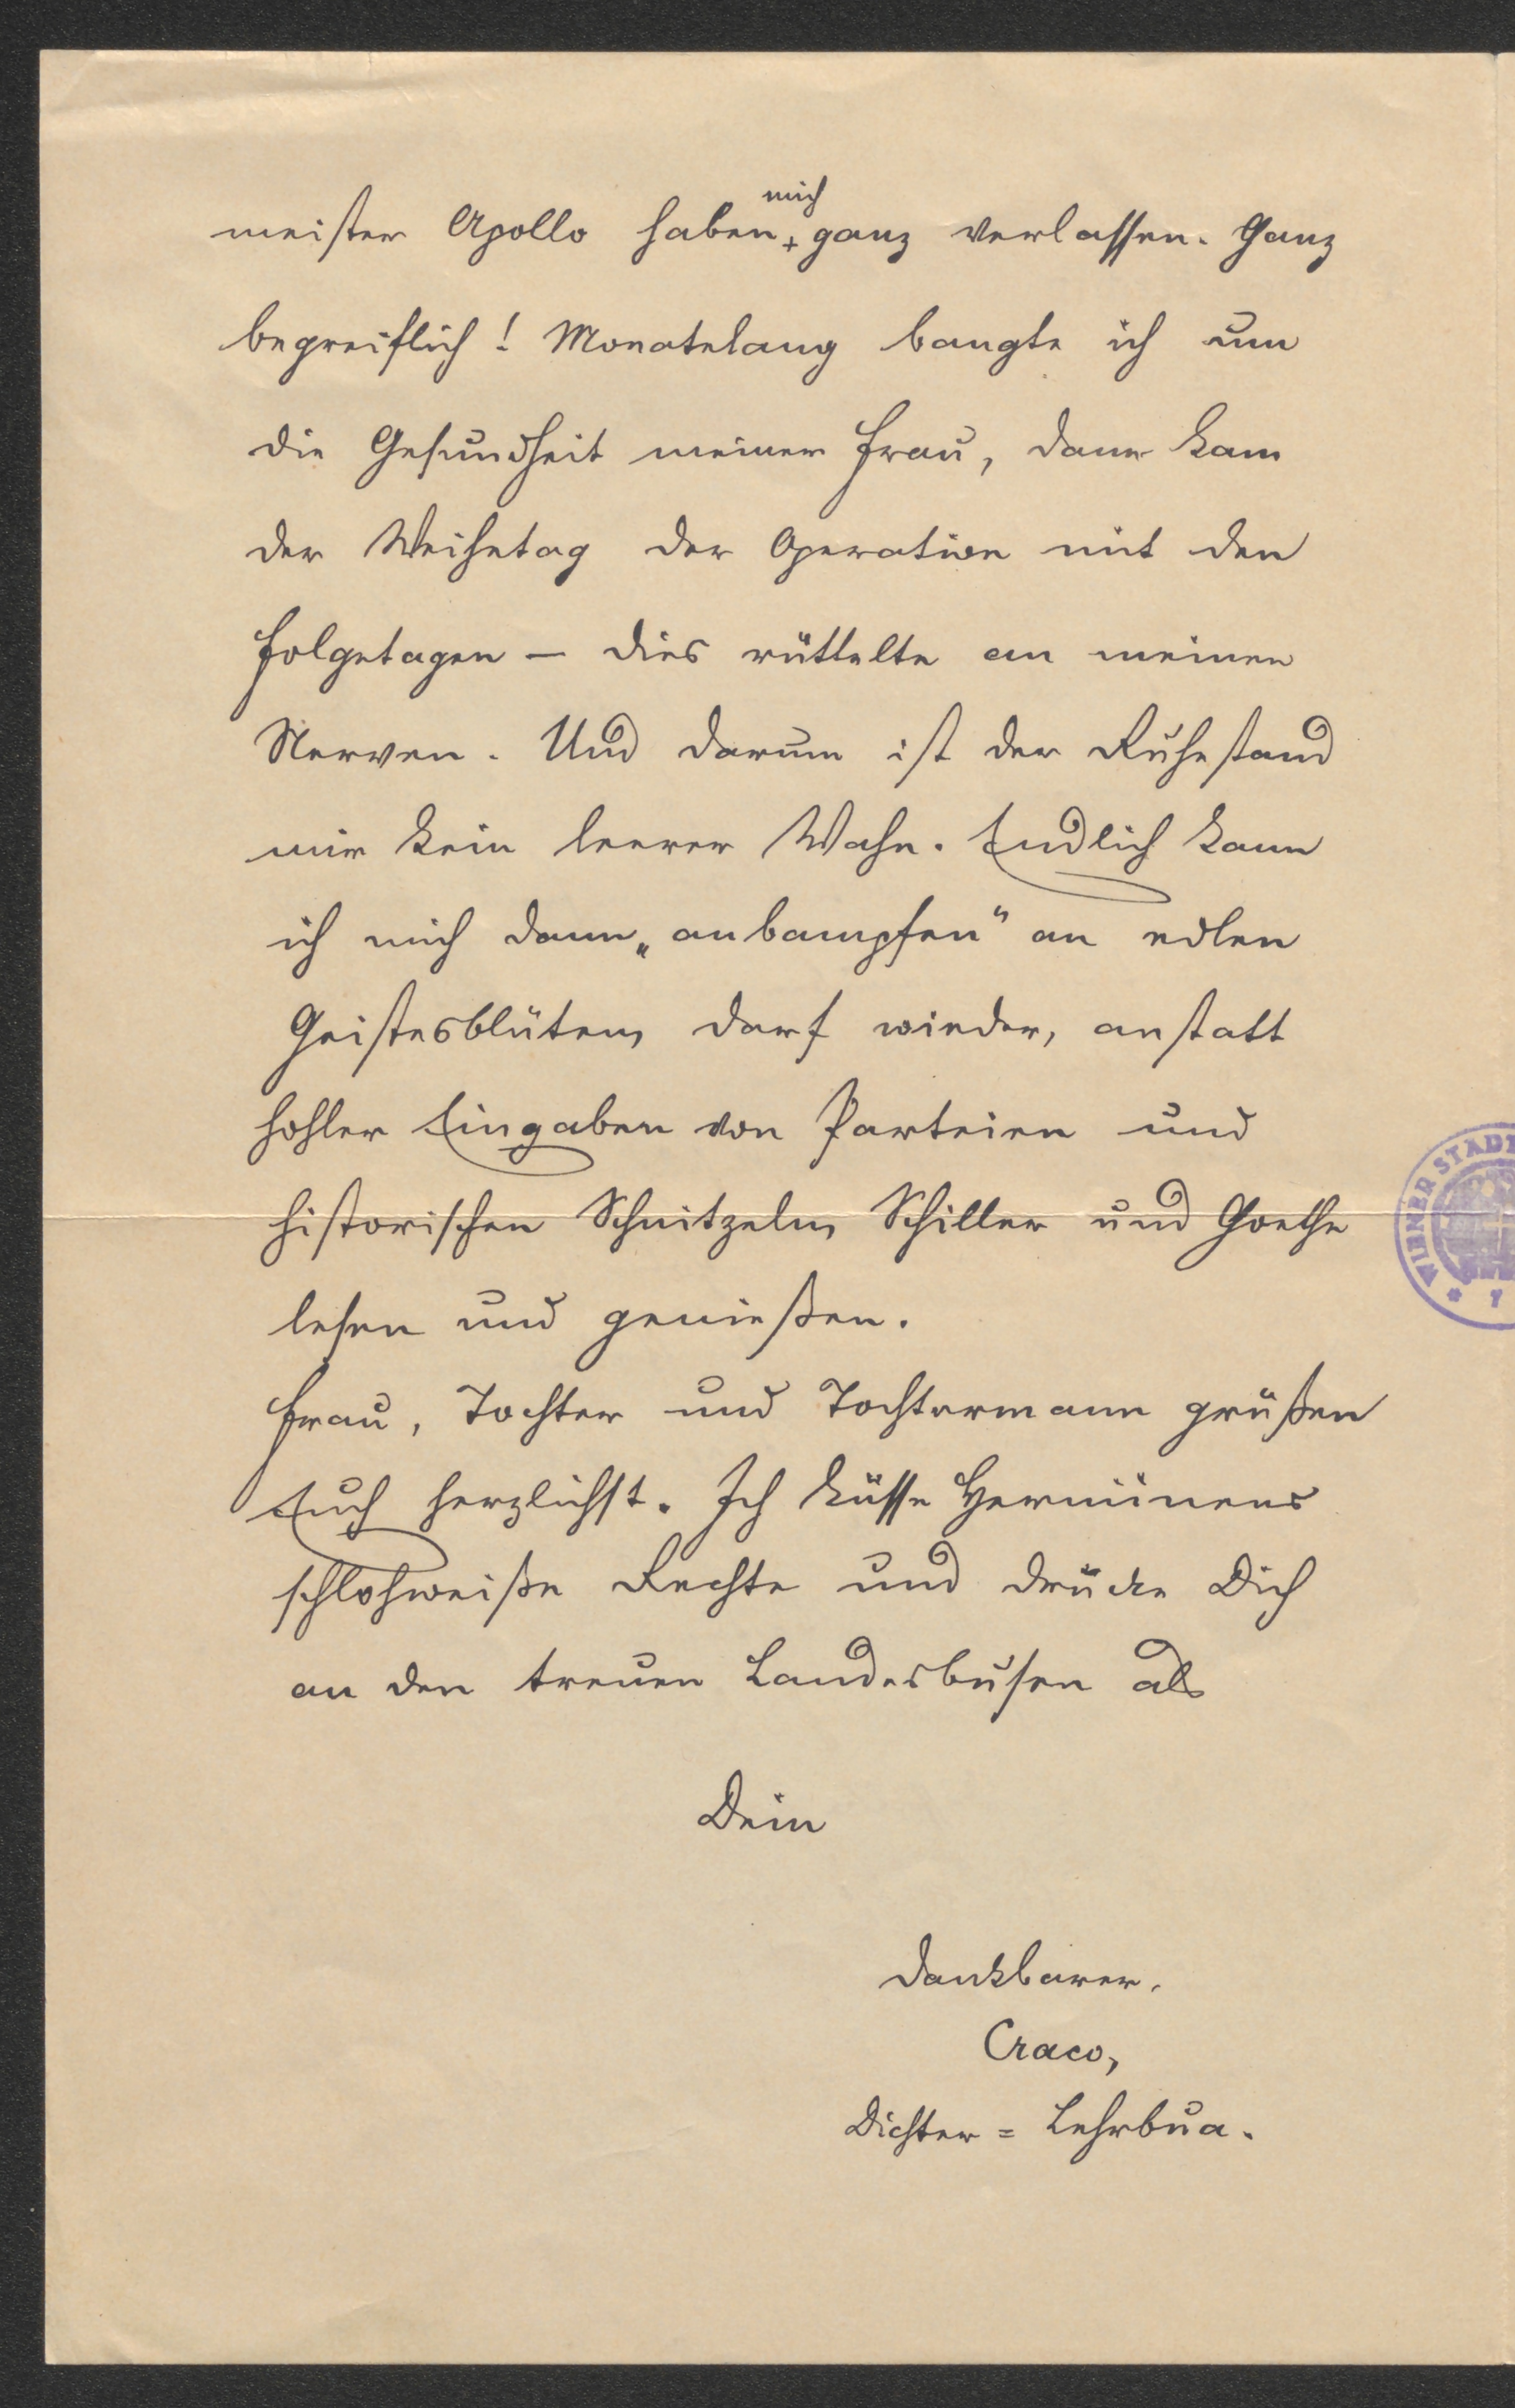 meister Apollo haben + mich ganz verlassen. Ganz
begreiflich! Monatelang bangte ich um
die Gesundheit meiner Frau, dann kam
der Weihetag der Operation mit den
Folgetagen — dies rüttelte an meinen
Nerven. Und darum ist der Ruhestand
mir kein leerer Wahn. Endlich kann
ich mich dann „anbampfen“ an edlen
Geistesblüten, darf wieder, anstatt
hohler Eingaben von Parteien und
historischen Schnitzeln, Schiller und Goethe
lesen und genießen.
Frau, Tochter und Tochtermann grüßen
Euch herzlichst. Ich küsse Herminens
schlohweiße Rechte und drücke Dich
an den treuen Landesbusen als
Dein
dankbarer.
Craco,
Dichter = Lehrbua.
WIENER STAD